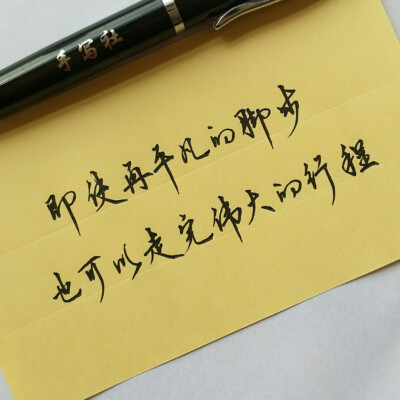 手写社
即使再平凡的脚步
也可以走完伟大的行程